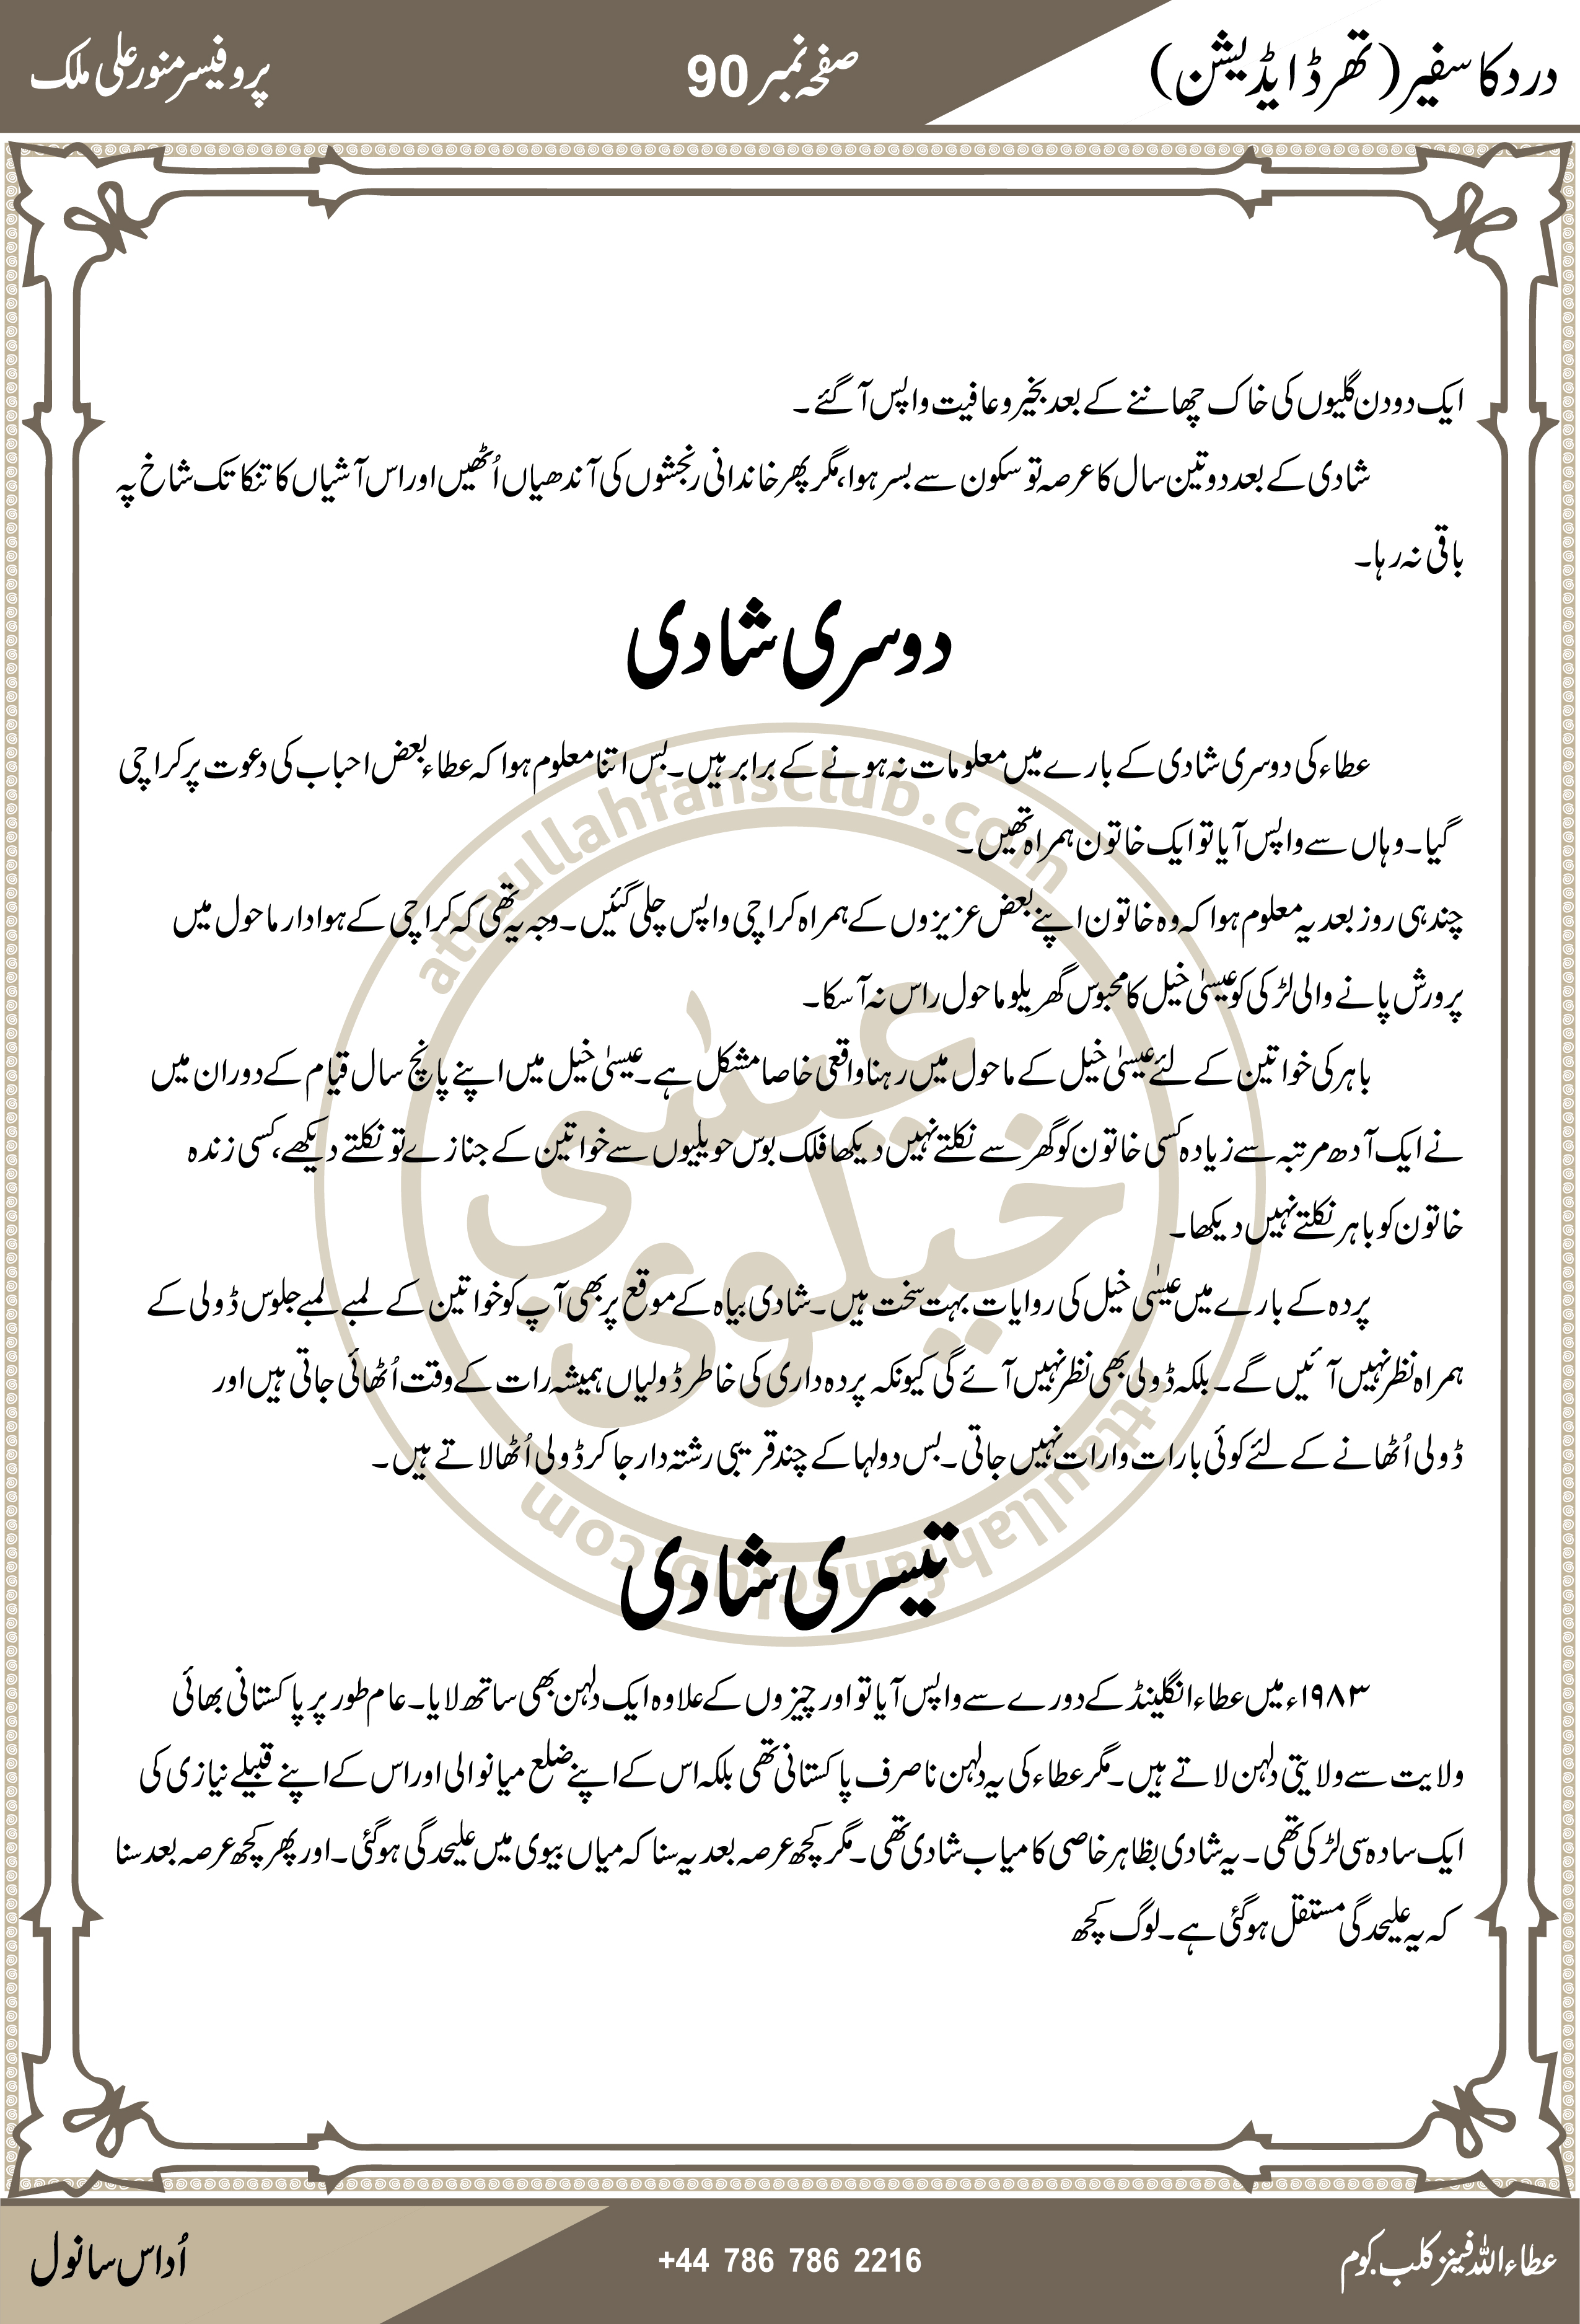 درد کا سفیر (تھرڈ ایڈیشن)
صفحہ نمبر 90
پروفیسر منور علی ملک
ایک دو دن گلیوں کی خاک چھاننے کے بعد بخیر و عافیت واپس آ گئے۔
شادی کے بعد دو تین سال کا عرصہ تو سکون سے بسر ہوا، مگر پھر خاندانی رنجشوں کی آندھیاں اُٹھیں اور اس آشیاں کا تنکا تک شاخ پہ
باقی نہ رہا۔
دوسری شادی
عطاء کی دوسری شادی کے بارے میں معلومات نہ ہونے کے برابر ہیں۔ بس اتنا معلوم ہوا کہ عطاء بعض احباب کی دعوت پر کراچی
گیا۔ وہاں سے واپس آیا تو ایک خاتون ہمراہ تھیں۔
چند ہی روز بعد یہ معلوم ہوا کہ وہ خاتون اپنے بعض عزیزوں کے ہمراہ کراچی واپس چلی گئیں۔ وجہ یہ تھی کہ کراچی کے ہوادار ماحول میں
پرورش پانے والی لڑکی کو عیسیٰ خیل کا محبوس گھریلو ماحول راس نہ آ سکا۔
باہر کی خواتین کے لئے عیسیٰ خیل کے ماحول میں رہنا واقعی خاصا مشکل ہے۔ عیسیٰ خیل میں اپنے پانچ سال قیام کے دوران میں
نے ایک آدھ مرتبہ سے زیادہ کسی خاتون کو گھر سے نکلتے نہیں دیکھا فلک بوس حویلیوں سے خواتین کے جنازے تو نکلتے دیکھے، کسی زندہ
خاتون کو باہر نکلتے نہیں دیکھا۔
پردہ کے بارے میں عیسٰی خیل کی روایات بہت سخت ہیں۔ شادی بیاہ کے موقع پر بھی آپ کو خواتین کے لمبے لمبے جلوس ڈولی کے
ہمراہ نظر نہیں آئیں گے۔ بلکہ ڈولی بھی نظر نہیں آئے گی کیونکہ پردہ داری کی خاطر ڈولیاں ہمیشہ رات کے وقت اُٹھائی جاتی ہیں اور
ڈولی اُٹھانے کے لئے کوئی بارات وارات نہیں جاتی۔ بس دولہا کے چند قریبی رشتہ دار جا کر ڈولی اُٹھا لاتے ہیں۔
تیسری شادی
۱۹۸۳ء میں عطاء انگلینڈ کے دورے سے واپس آیا تو اور چیزوں کے علاوہ ایک دلہن بھی ساتھ لایا۔ عام طور پر پاکستانی بھائی
ولایت سے ولایتی دلہن لاتے ہیں۔ مگر عطاء کی یہ دلہن نا صرف پاکستانی تھی بلکہ اس کے اپنے ضلع میانوالی اور اس کے اپنے قبیلے نیازی کی
ایک سادہ سی لڑکی تھی۔ یہ شادی بظاہر خاصی کامیاب شادی تھی۔ مگر کچھ عرصہ بعد یہ سنا کہ میاں بیوی میں علیحدگی ہو گئی۔ اور پھر کچھ عرصہ بعد سنا
کہ یہ علیحدگی مستقل ہو گئی ہے۔ لوگ کچھ
attaullahfansclub.com
عیسٰی
خیلوی
attaullahfansclub.com
عطاءاللہ فینز کلب.کوم
+44 786 786 2216
اُداس سانول